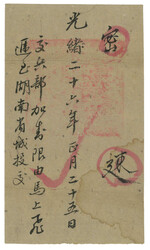 密
光緒二十六年正月二十五日
交兵部加封限由馬上飛
遞至湖南省城投交